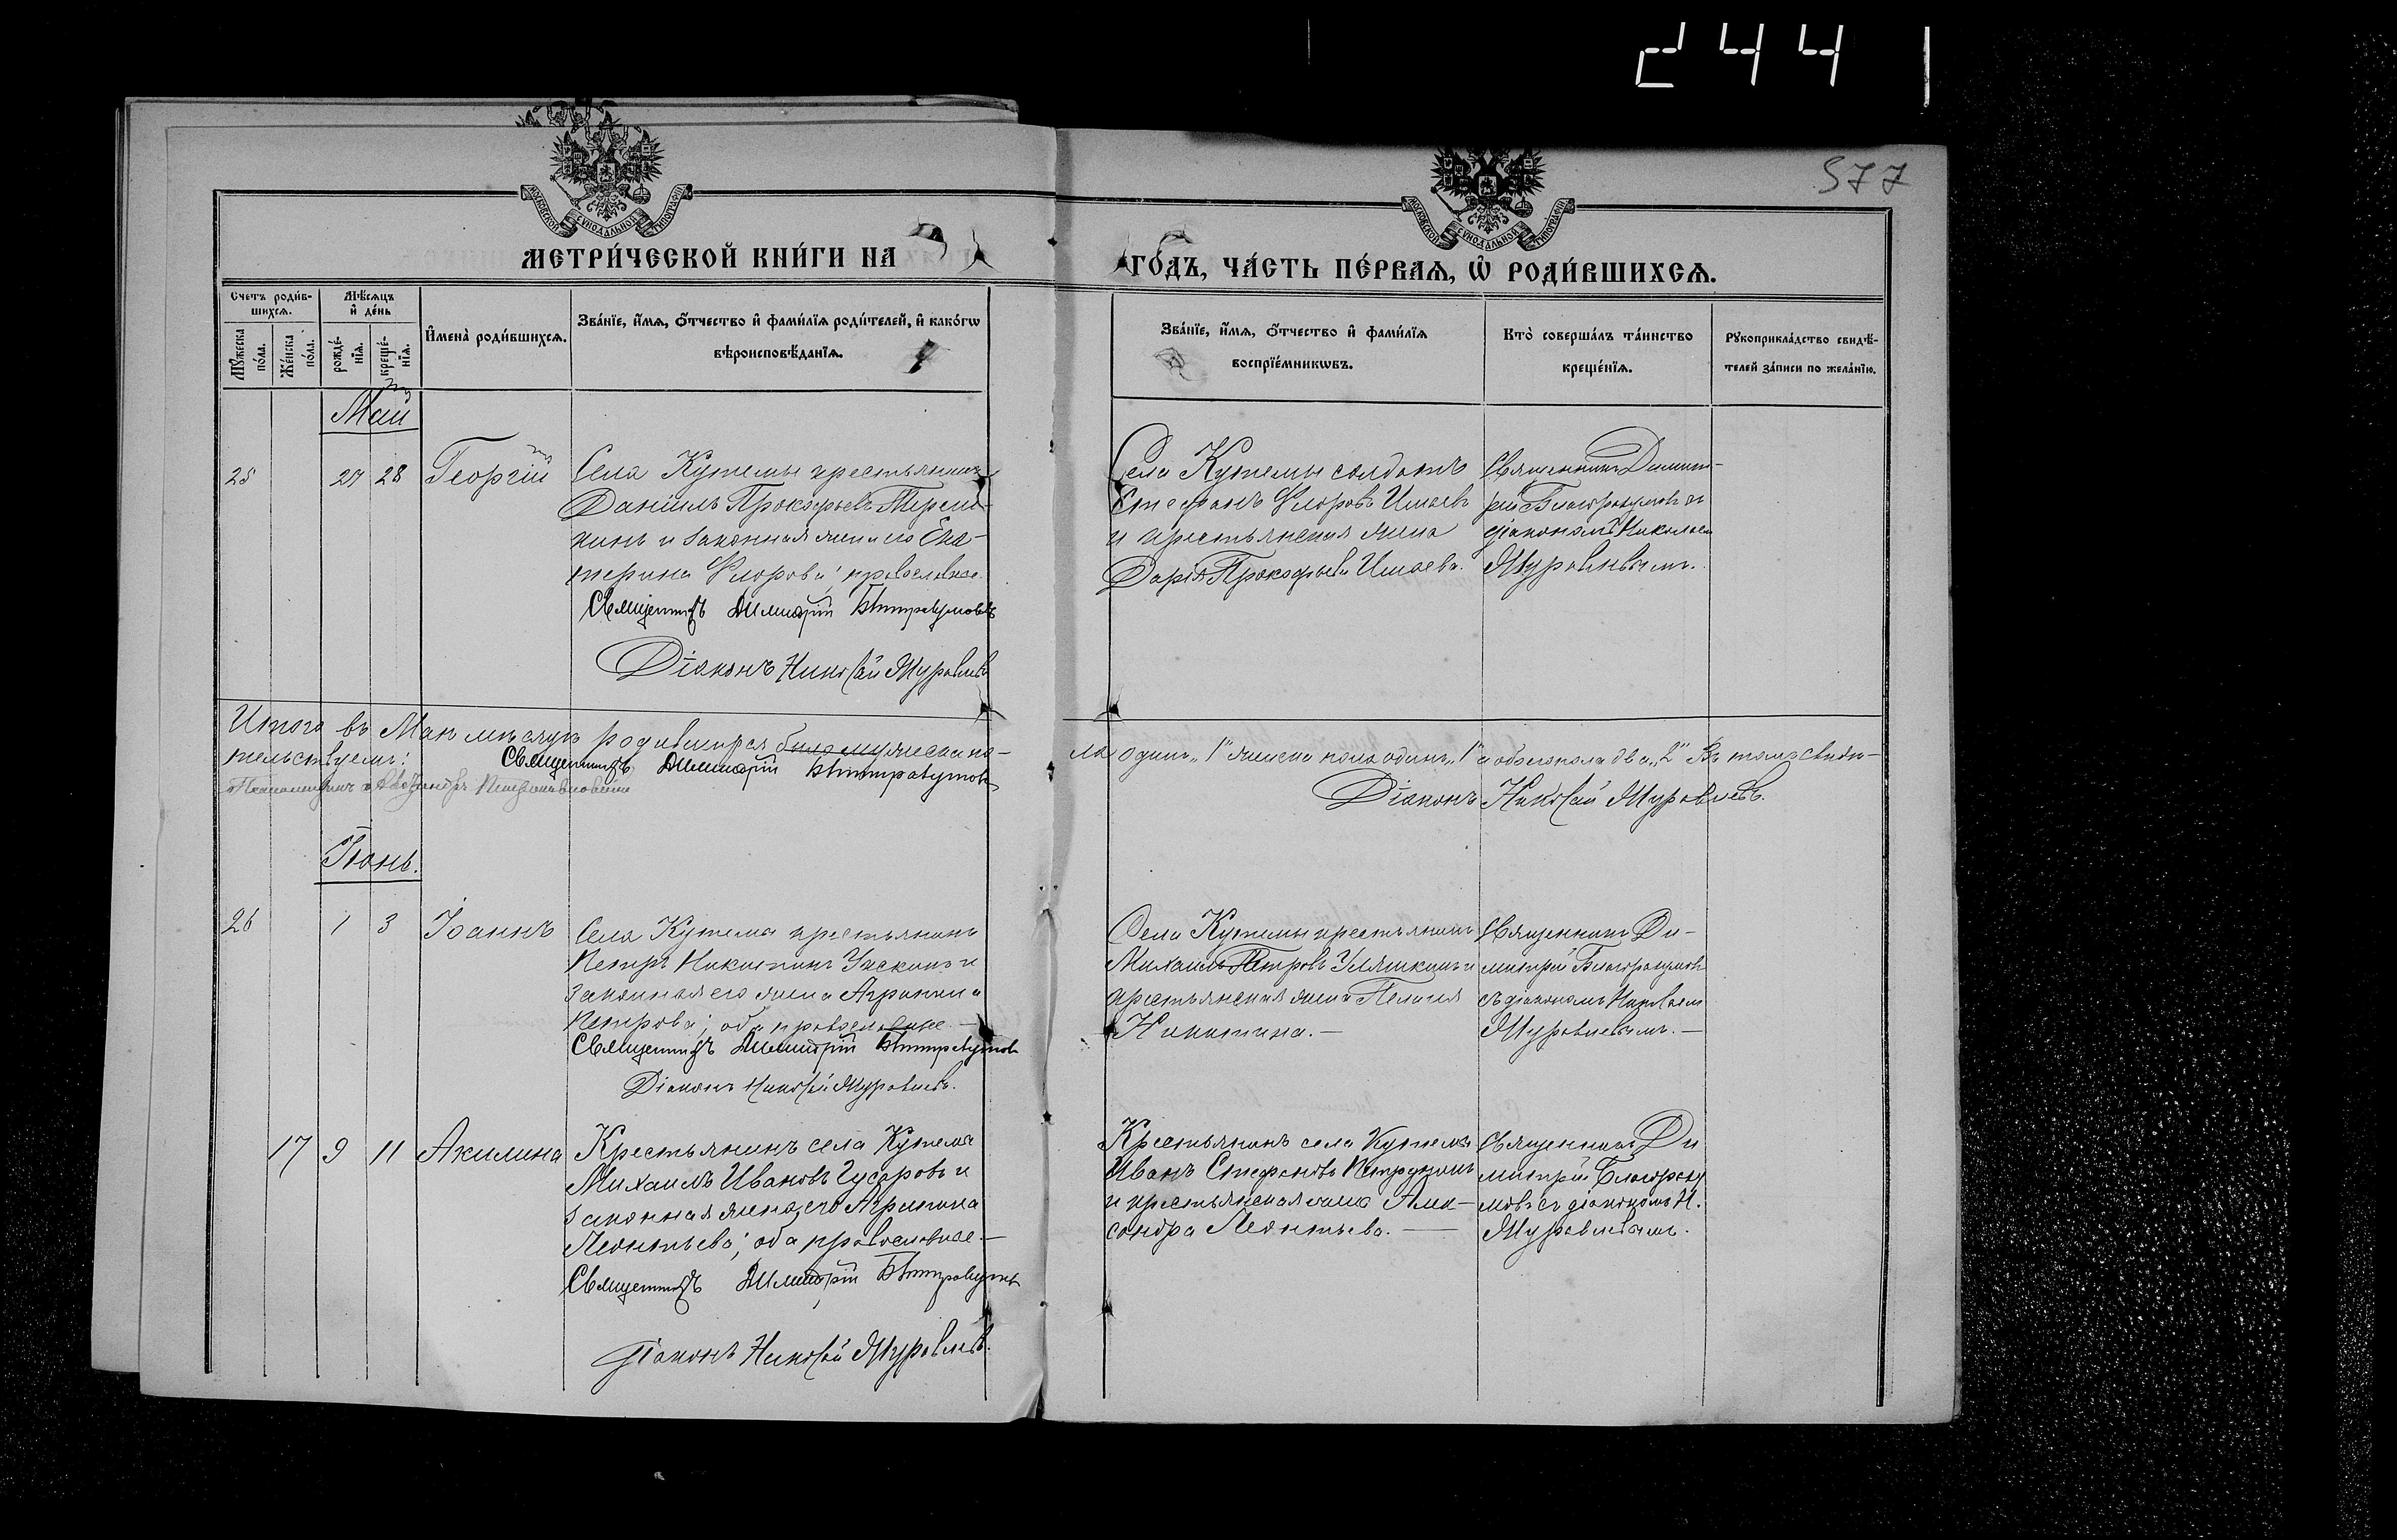 244
577
МОСКОВСКОЙ СѴНОДАЛЬНОЙ ТИПОГРАФІИ
МОСКОВСКОЙ СѴНОДАЛЬНОЙ ТИПОГРАФІИ
МЕТРИ́ЧЕСКОЙ КНИ́ГИ НА ГО́ДЪ, ЧА́СТЬ ПЕ́РВАѦ, Ѡ҆ РОДИ́ВШИХСѦ.
Счетъ роди́в-
шихсѧ.
Мѹ́жеска по́ла.
Же́нска по́ла.
Мѣ́сѧцъ
и҆ де́нь
рожде́-
нїѧ.
креще́-
нїѧ.
И҆мена̀ роди́вшихсѧ.
Зва́нїе, и҆́мѧ, ѻ҆́тчество и҆ фами́лїѧ роди́телей, и҆ како́гѡ
вѣроисповѣ́данїѧ.
Зва́нїе, и҆́мѧ, ѻ҆́тчество и҆ фами́лїѧ
воспрїе́мникѡвъ.
Кто̀ соверша́лъ та́инство
креще́нїѧ.
Рѹкоприкла́дство свидѣ́-
телей за́писи по жела́нїю.
Май
25 27 28 Георгій
Села Кутемы крестьянинъ
Даніилъ Прокофьевъ
и законная жена его Ека-
терина Флорова; православные.
Священникъ Димитрій Благоразумовъ
Діаконъ Николай Муравлевъ
Села Кутемы солдатъ
Стефанъ Флоровъ Ишаевъ
и крестьянская жена
Дарія Прокофьева Ишаева.
Священникъ Димит-
рій Благоразумовъ съ
діакономъ Николаем
Муравлевымъ.
Итого въ Маѣ мѣсяцѣ родившихся было мужеска по-
ла одинъ „1" женска пола одинъ „1" а обоего пола два „2" Въ томъ свидѣ-
тельствуемъ:
Священникъ Димитрій Благоразумовъ
Діаконъ Николай Муравлевъ.
Псаломщикъ
Іюнь.
26 1 3 Іоаннъ
Села Кутема крестьянинъ
Петръ Никитинъ и
законная его жена Агрипина
Петрова; оба православные. —
Священникъ Димитрій Благоразумовъ
Діаконъ Николай Муравлевъ.
Села Кутемы крестьянинъ
Михаилъ Петровъ и
крестьянская жена
Никитина. —
Священникъ Ди-
митрій Благоразумовъ
съ діакономъ Николаем
Муравлевымъ. —
17 9 11 Акилина
Крестьянинъ села Кутема
Михаилъ Ивановъ Гусаровъ и
законная жена его Агрипина
Леонтьева; оба православные. —
Священникъ Димитрій Благоразумовъ
Діаконъ Николай Муравлевъ.
Крестьянинъ села Кутема
Иванъ Стефановъ Петрунинъ
и крестьянская жена Алек-
сандра Леонтьева. —
Священникъ Ди
митрій Благоразу
мовъ съ діакономъ Н.
Муравлевымъ.